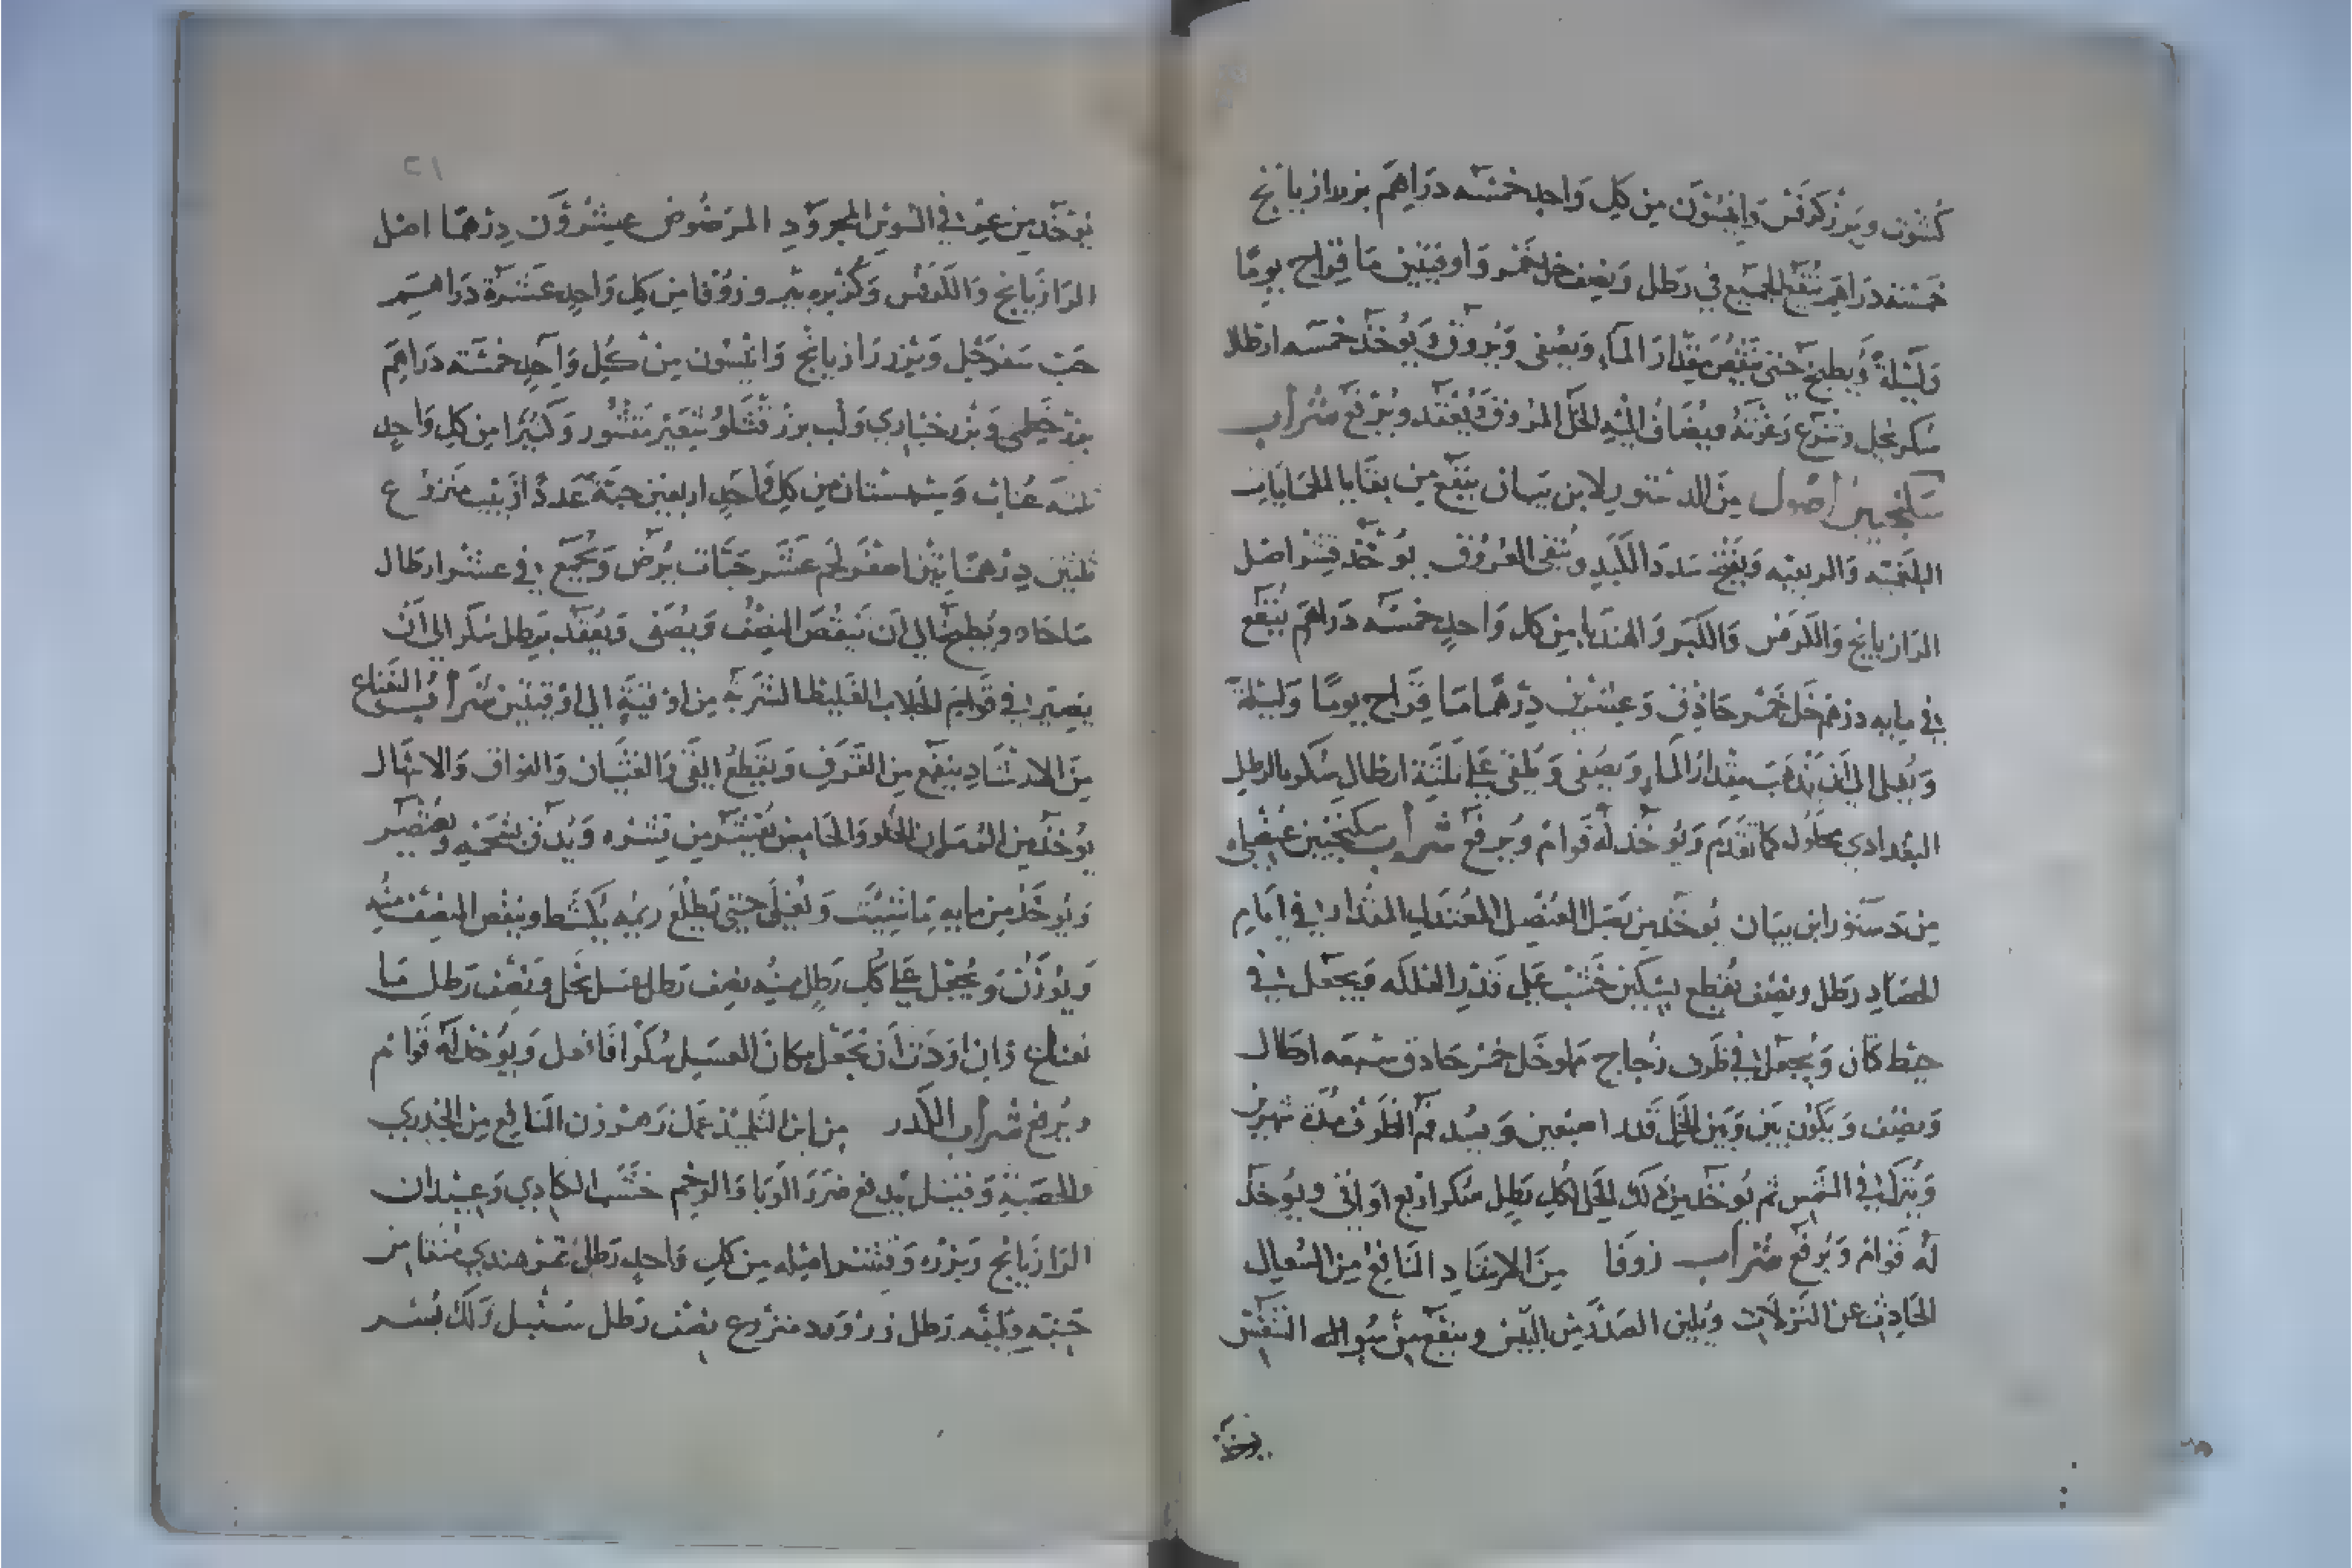 كشوت وبزر كرفس وانيسون من كل واحد خمسه دراهم بزر رازيانج
خمسه دراهم ينقع الجميع في رطل ونصف خل خمر واوقيتين ما قراح يوما
وليلة ويطبخ حتى ينقص مقدار الماء ويصفى ويروق ويوخذ خمسه ارطال
سكر يحل وتنزع رغوته ويضاف اليه الخل المروق ويعقد ويرفع شراب
سكنجبين اصول من الدستور لابن بيان ينفع من بقايا الحمايات
البلغميه والربعيه ويفتح سدد الكبد وينقى العروق يوخذ قشر اصل
الرازيانج والكرفس والكبر والهندبا من كل واحد خمسه دراهم ينقع
في مايه درهم خل خمر حاذق وعشرين درهما ما قراح يوما وليلة
ويغلى الى ان يذهب مقدار الماء ويصفى ويلقى على ثلثة ارطال سكر بالرطل
البغدادي محلوله كما تقدم ويوخذ له قوام ويرفع شراب سكنجبين عنصلي
من دستور ابن بيان يوخذ من بصل العنصل المعتدل المقدار في ايام
الحصاد رطل ونصف يقطع بسكين خشب على قدر الفلكه ويجعل في
خيط كتان ويجعل في ظرف زجاج مملو خل خمر حاذق سبعه ارطال
ونصف ويكون بين وبين الخل قدر اصبعين ويسد فم الظرف مدة شهرين
ويترك في الشمس ثم يوخذ من ذلك الخل لكل رطل سكر اربع اواقي ويوخذ
له قوام ويرفع شراب زوفا من الارشاد النافع من السعال
الحادث عن النزلات ويلين الصدر من اليبس وينفع من سو التنفس
يوخذ
يوخذ من عرق السوس المجرود المرضوض عشرون درهما اصل
الرازيانج والكرفس وكزبره بير وزوفا من كل واحد عشرة دراهم
حب سفرجل وبزر رازيانج وانيسون من كل واحد خمسه دراهم
بزر خطمى وبزر خبازي ولب بزر قثا وشعير مقشور وكثيرا من كل واحد
ثلثه عناب وسبستان من كل واحد اربعين حبة عددا زبيب منزوع
ثلثين درهما تين اصفر لحم عشر حبات يرض ويجمع في عشر ارطال
ما حار ويطبخ الى ان ينقص النصف ويصفى ويعقد برطل سكر الى ان
يصير في قوام الجلاب الغليظ الشربة من اوقية الى اوقيتين شراب النعناع
من الارشاد ينفع من القرف ويقطع القى والغثيان والفواق والاسهال
يوخذ من الرمان الحلو والحامض يقشر من قشره ويدق بشحمه ويعتصر
ويوخذ من مايه ما شيت ويغلى حتى تطلع ريمه يكشط وينقص النصف منه
ويوزن ويجعل على كل رطل منه نصف رطل عسل نحل ونصف رطل ما
نعناع وان اردت ان تجعل مكان العسل سكرا فافعل ويوخذ له قوام
ويرفع شراب الكدر من ابن التلميذ عمل النافع من الجدري
والحصبة وقيل يدفع ضرر الوبا والوخم خشب الكادي وعيدان
الرازيانج وبزره وقشر اصله من كل واحد رطل تمر هندي منقا من
حبه وليفه رطل زر ورد منزوع نصف رطل سنبل لك بسر
١٥